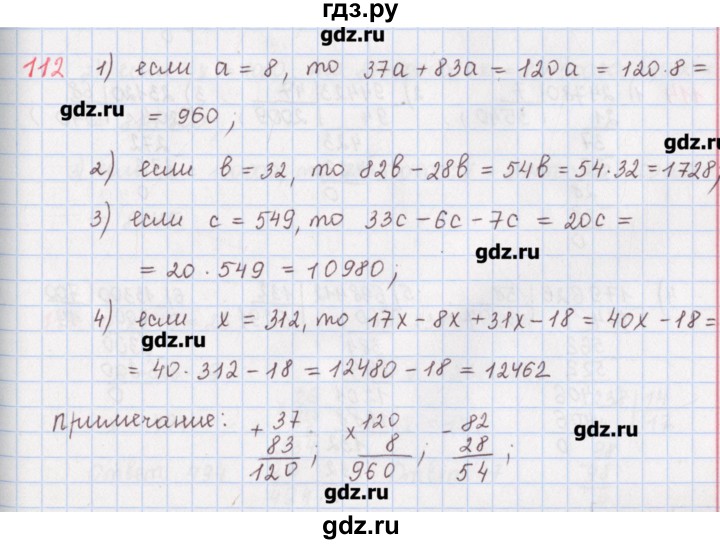 гдз.ру
gdz.ru
112 1) если a = 8, то 37a + 83a = 120a = 120·8 =
gdz.ru
= 960;
gdz.ru
2) если в = 32, то 82в - 28в = 54в = 54·32 = 1728;
3) если c = 549, то 33c - 6c - 7c = 20c =
gdz.ru
= 20·549 = 10980;
4) если x = 312, то 17x - 8x + 31x - 18 = 40x - 18 =
gdz.ru
= 40·312 - 18 = 12480 - 18 = 12462
примечание: + 37 × 120 - 82
gdz.ru
83 ; 8 ; 28 ;
120 960 54
gdz.ru
gdz.ru